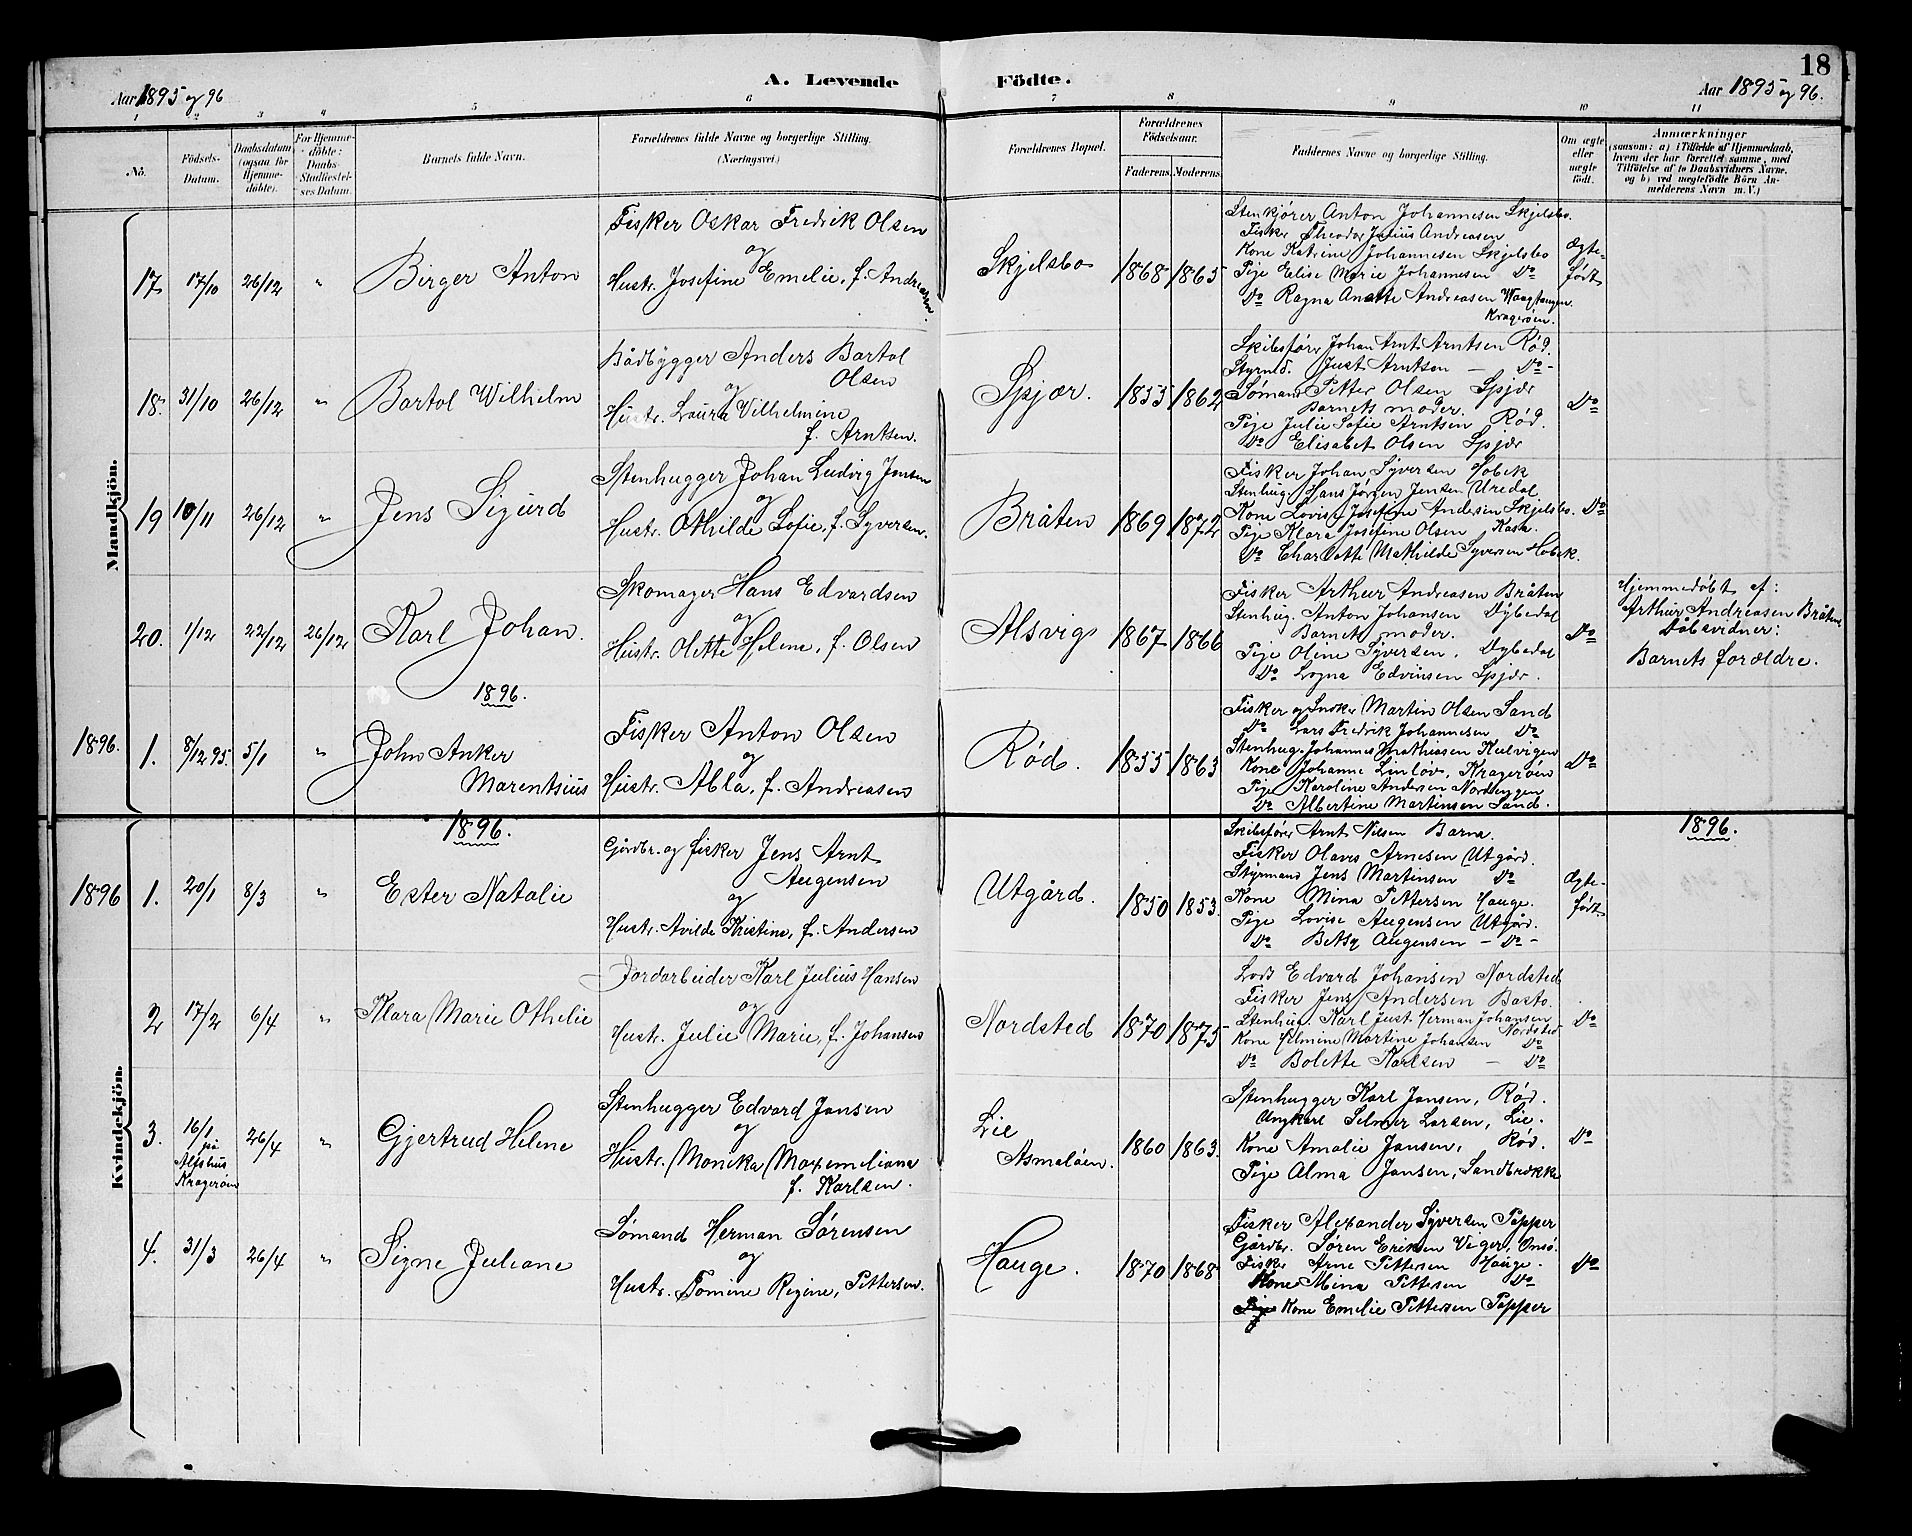 18
A. Levende Födte.
Aar 1895 og 96
Aar 1895 og 96.
1 2 3 4 5 6 7 8 9 10 11
No.
Födsels-
Datum.
Daabsdatum
(ogsaa for
Hjemme-
döbte).
For Hjemme-
döbte:
Daabs-
Stadfæstel-
ses Datum.
Barnets fulde Navn.
Forældrenes fulde Navne og borgerlige Stilling.
(Næringsvei.)
Forældrenes Bopæl.
Forældrenes
Födselsaar.
Faderens. Moderens.
Faddernes Navne og borgerlige Stilling.
Om ægte
eller
uægte
födt.
Anmærkninger
(saasom: a) i Tilfælde af Hjemmedaab,
hvem der har forrettet samme, med
Tilföielse af to Daabsvidners Navne,
og b) ved uægtefödte Börn An-
melderens Navn m. V.)
Mandkjön.
17 17/10 26/12 "
Birger Anton
Fisker Oskar Fredrik Olsen
og
Hustr. Josefine Emelie, f. Andreasen.
Skjelsbo
1868 1865
Stenkjörer Anton Johannesen Skjelsbo.
Fisker Theodor Julius Andreasen
Kone Katrine Johannesen Skjelsbo
Pige Elise Marie Johannesen Do
Do Ragna Anette Andreasen Waagtangen
Kragerøen.
Ægte-
født
18. 31/10 26/12 "
Bartol Wilhelm
Bådbygger Anders Bartol
Olsen
og
Hustr. Laura Wilhelmine
f. Arntsen.
Spjær.
1855 1862
Skibsfører Johan Arnt Arntsen Rød.
Styrmd. Just Arntsen – Do -
Sømand Petter Olsen Spjær
Barnets moder.
Pige Julie Sofie Arntsen Rød.
Do Elisabet Olsen Spjær
Do
19 10/11 26/12 "
Jens Sigurd
Stenhugger Johan Ludvig Jensen
og
Hustr. Othilde Sofie, f. Syversen.
Bråten
1869 1872
Fisker Johan Syversen Hobek
Stenhug. Hans Jørgen Jensen Uredal
Kone Lovise Josefine Andersen Skjelsbo.
Pige Klara Josefine Olsen Kasa.
Do Charlotte Mathilde Syversen Hobek.
Do
20. 1/12 22/12 26/12
Karl Johan.
Skomager Hans Edvardsen
og
Hustr. Olette Helene, f. Olsen
Alsvig
1867 1866
Fisker Arthur Andreasen Bråten
Stenhug. Anton Johansen Dybedal
Barnets moder.
Pige Oline Syversen, Dybedal
Do Lovna Edvinsen Spjær.
Do
Hjemmedøbt af:
Arthur Andreasen Bråten
Dåbsvidner:
Barnets forældre.
1896.
1896. 1. 8/12 95. 5/1 "
John Anker
Marentsius
Fisker Anton Olsen
og
Hustr. Abla, f. Andreasen
Rød.
1855 1863
Fisker og Snekker Martin Olsen Sand
Do Lars Fredrik Johannesen Do
Stenhug. Johannes Mathiasen Kulvigen
Kone Johanne Linløv, Kragerøen
Pige Karoline Andersen Nordbyggen
Do Albertine Martinsen Sand.
Do
Kvindekjön.
1896.
1896.
1896 1. 20/1 8/3 "
Ester Natalie
Gårdbr. og fisker Jens Arnt
Augensen
og
Hustr. Avilde Kristine, f. Andersen
Utgård.
1850 1853.
Skibsfører Arnt Nilsen Barna.
Fisker Olaves Arnesen Utgård.
Styrmand Jens Martinsen Do
Kone Mina Pettersen Hauge.
Pige Lovise Augensen Utgård.
Do Betsy Augensen – Do -
Ægte-
født
2 17/2 6/4 "
Klara Marie Othelie
Jordarbeider Karl Julius Hansen
og
Hustr. Julie Marie, f. Johansen
Nordsted
1870 1875
Lods Edvard Johansen Nordsted
Fisker Jens Andersen Basto.
Stenhug. Karl Just Herman Johansen
Nordsted
Kone Helmine Martine Johansen Do
Do Bolette Karlsen – Do
Do
3. 16/1
på
Alfshus
Kragerøen
26/4 "
Gjertrud Helene
Stenhugger Edvard Jansen
og
Hustr. Monika Maxemiliana
f. Karlsen.
Lie
Asmaløen.
1860 1863.
Stenhugger Karl Jansen, Rød.
Ungkarl Selmer Larsen, Lie.
Kone Amalie Jansen, Rød.
Pige Alma Jansen, Sandbrekke
Do
4. 31/3 26/4 "
Signe Juliane
Sømand Herman Sørensen
og
Hustr. Tomine Regine, Pettersen.
Hauge.
1870 1868
Fisker Alexander Syversen Papper
Gårdbr. Søren Eriksen Viger, Onsø.
Fisker Arne Pettersen Hauge.
Kone Mina Pettersen Do
Pige Kone Emelie Pettersen Papper
Do